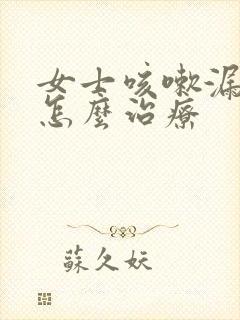 女士咳嗽漏
怎麼治療
蘇久妖